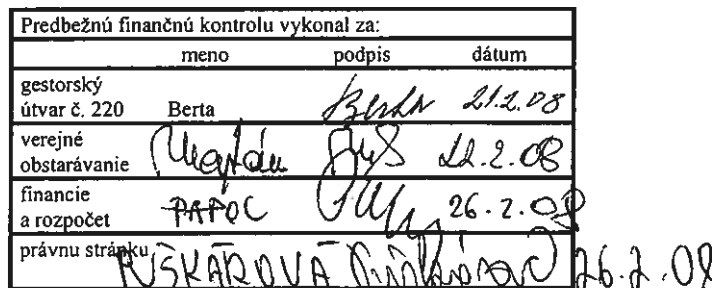 Predbežnú finančnú kontrolu vykonal za:
meno podpis dátum
gestorský
útvar č. 220 Berta Berta 21.2.08
verejné
obstarávanie 22.2.08
financie
a rozpočet PAPOC 26.2.08
právnu stránku PIŠKÁROVÁ 26.2.08